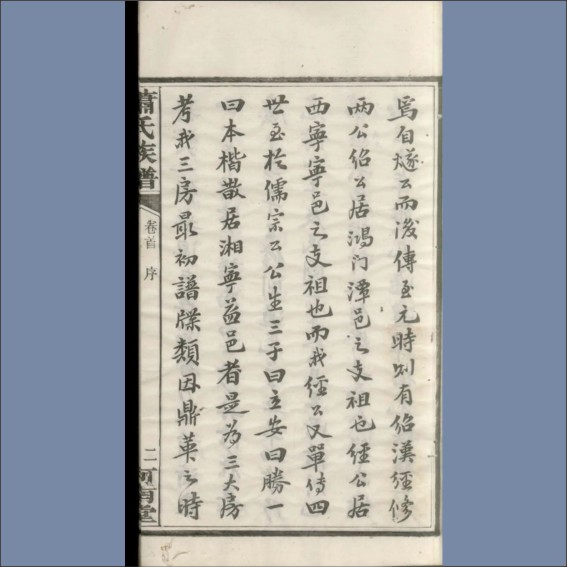 焉自燧公而後傳至元時則有紹漢經修
两公紹公居鴻门潭邑之支祖也經公居
西寧寧邑之支祖也而我經公又單傳四
世至於儒宗公公生三子曰立安曰勝一
曰本楷散居湘寧益邑者是為三大房
考我三房最初譜牒類因鼎革之時
蕭氏族譜
卷首 序
二
河南堂